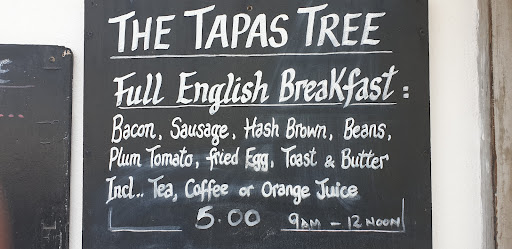 THE TAPAS TREE
Full English Breakfast :
Bacon, Sausage, Hash Brown, Beans,
Plum Tomato, fried Egg, Toast & Butter
Incl.. Tea, Coffee or Orange Juice
5.00 9AM - 12 NOON